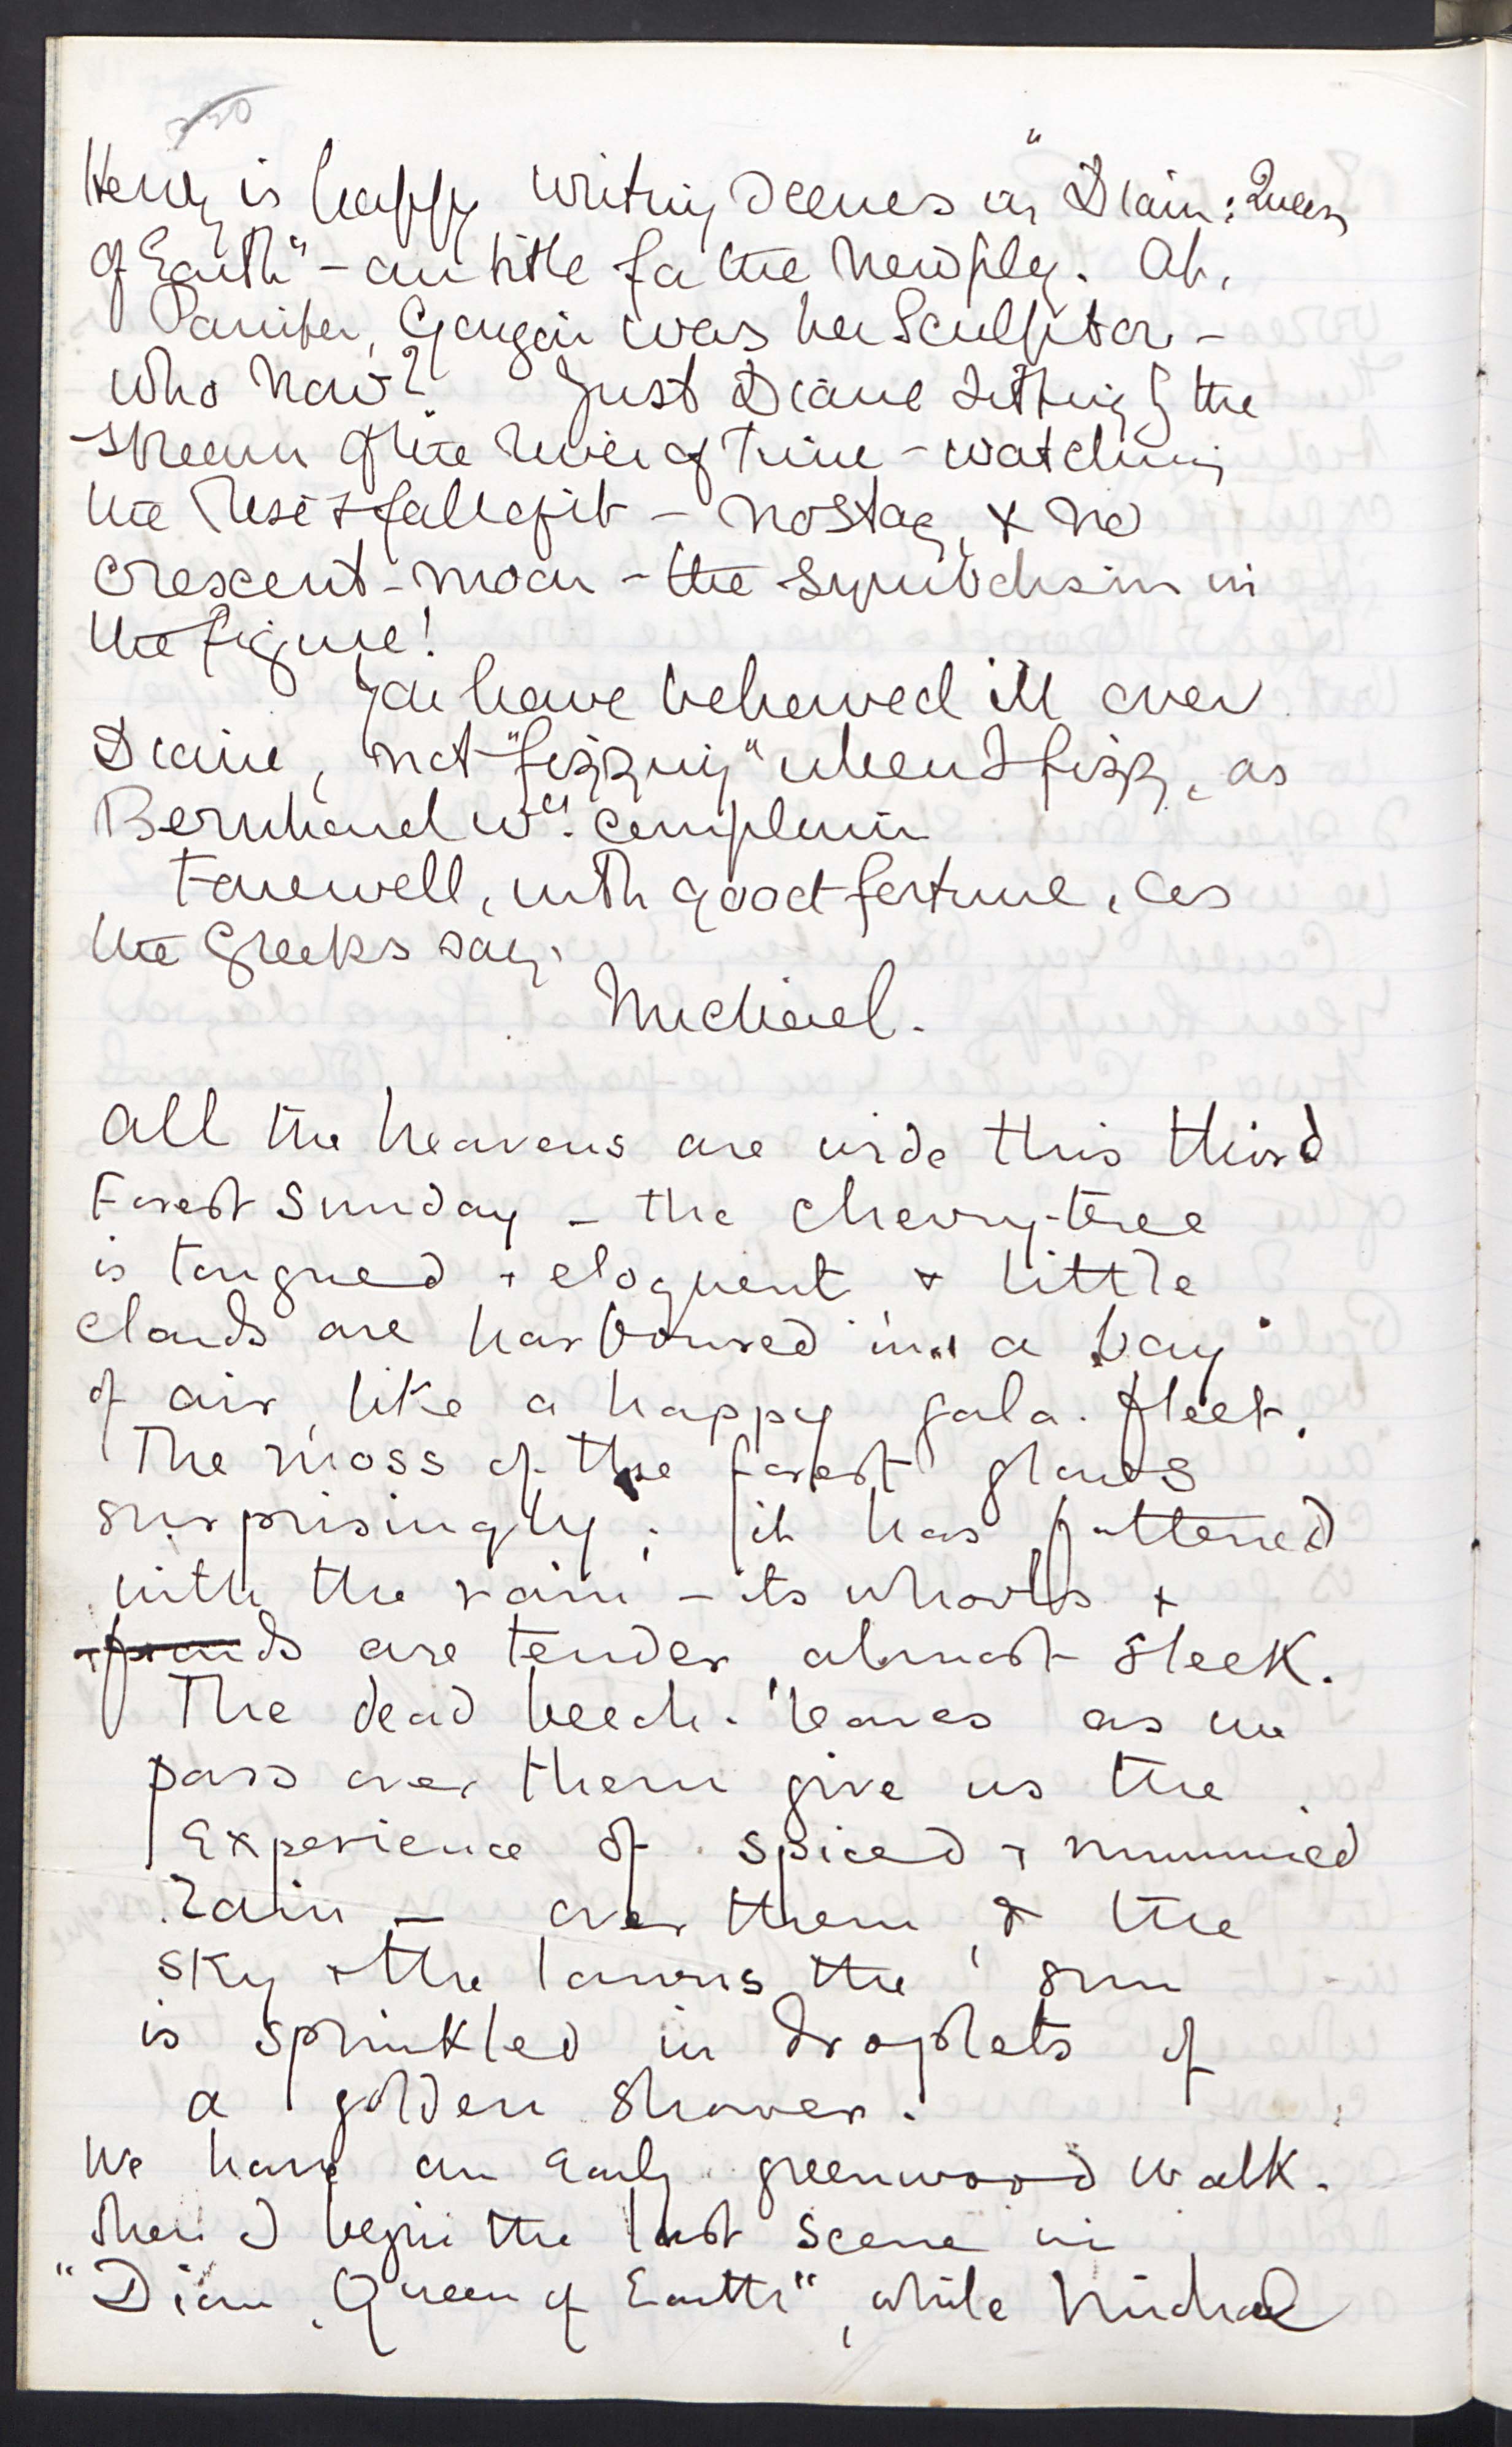 Henry is happy writing scenes in "Dian: Queen
of Earth" - our title for the new play. Ah,
Painter, Goujon was her Sculptor -
who now? Just Diane sitting by the
stream of the river of Time - watching
the rise & fall of it - no stag, & no
crescent-moon - the symbolism in
the figure!
You have behaved ill over
Diane, not "fizzing" when I fizz, as
Bernhard wd. complain
Farewell, with good fortune, as
the Greeks say.
Michael.
All the heavens are wide this third
Forest Sunday - the cherry-tree
is tongued & eloquent & little
clouds are harboured in a bay
of air, like a happy gala-fleet.
The moss of the forest glows
surprisingly; it has fattened
with the rain - its whorls &
are tender, almost sleek.
The dead beech-leaves as we
pass over them give us the
experience of spiced & mummied
rain - over them & the
sky & the lawns the sun
is sprinkled in droplets of
a golden shower.
We have an early greenwood walk.
Then I begin the last scene in
"Dian, Queen of Earth", while Michael